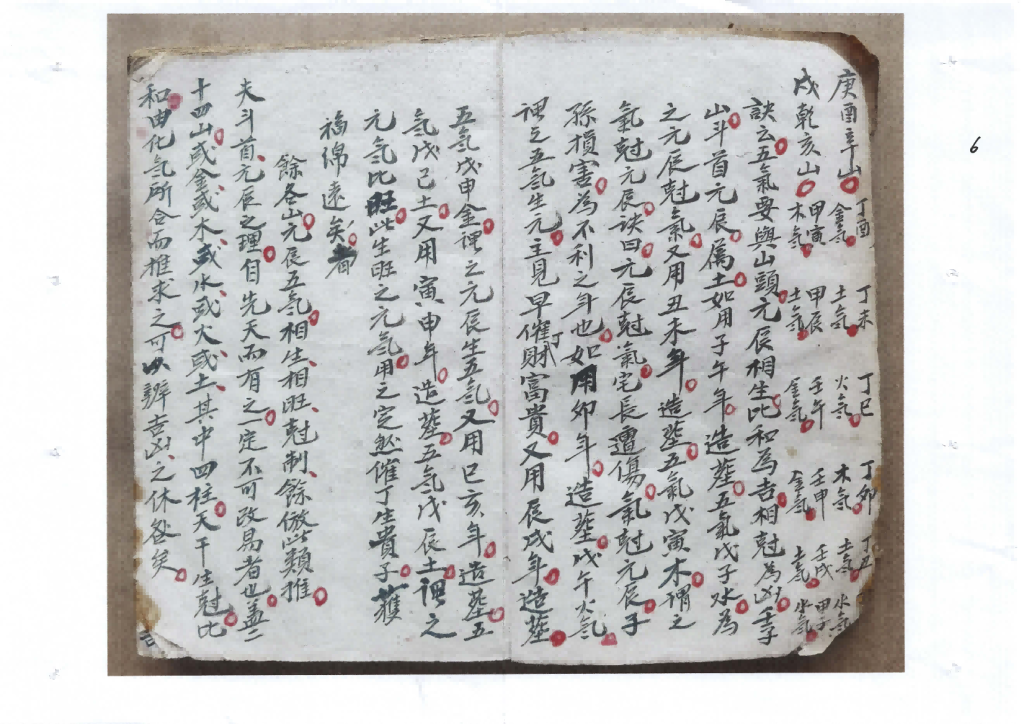 庚酉辛山 丁酉金氣 丁未土氣 丁巳火氣 丁卯木氣 丁丑土氣 水氣
戌乾亥山 甲寅木氣 甲辰土氣 壬午金氣 壬申金氣 壬戌土氣 甲子水氣
訣云五氣要與山頭元辰相生比和為吉相尅為凶壬子
山斗首元辰屬土如用子午年造塟五氣戊子水為
之元辰尅氣又用丑未年造塟五氣戊寅木謂之
氣尅元辰訣曰元辰尅氣宅長遭傷氣尅元辰子
孫損害為不利之年也如用卯年造塟戊午火氣
謂之五氣生元主見早催丁財富貴又用辰戌年造塟
五氣戊申金謂之元辰生五氣又用巳亥年造塟五
氣戊己土又用寅申年造塟五氣戊辰土謂之
元氣比旺此生旺之元氣用之定然催丁生貴子獲
福綿遠矣
餘各山元辰五氣相生相旺尅制餘倣此類推
夫斗首元辰之理自先天而有之一定不可改易者也蓋二
十四山或金或木或水或火或土其中四柱天干生尅比
和由化氣所合而推求之可以辨吉凶之休咎矣
6